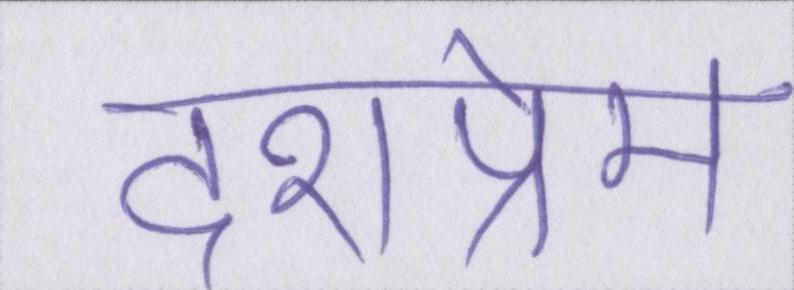 दशप्रेम